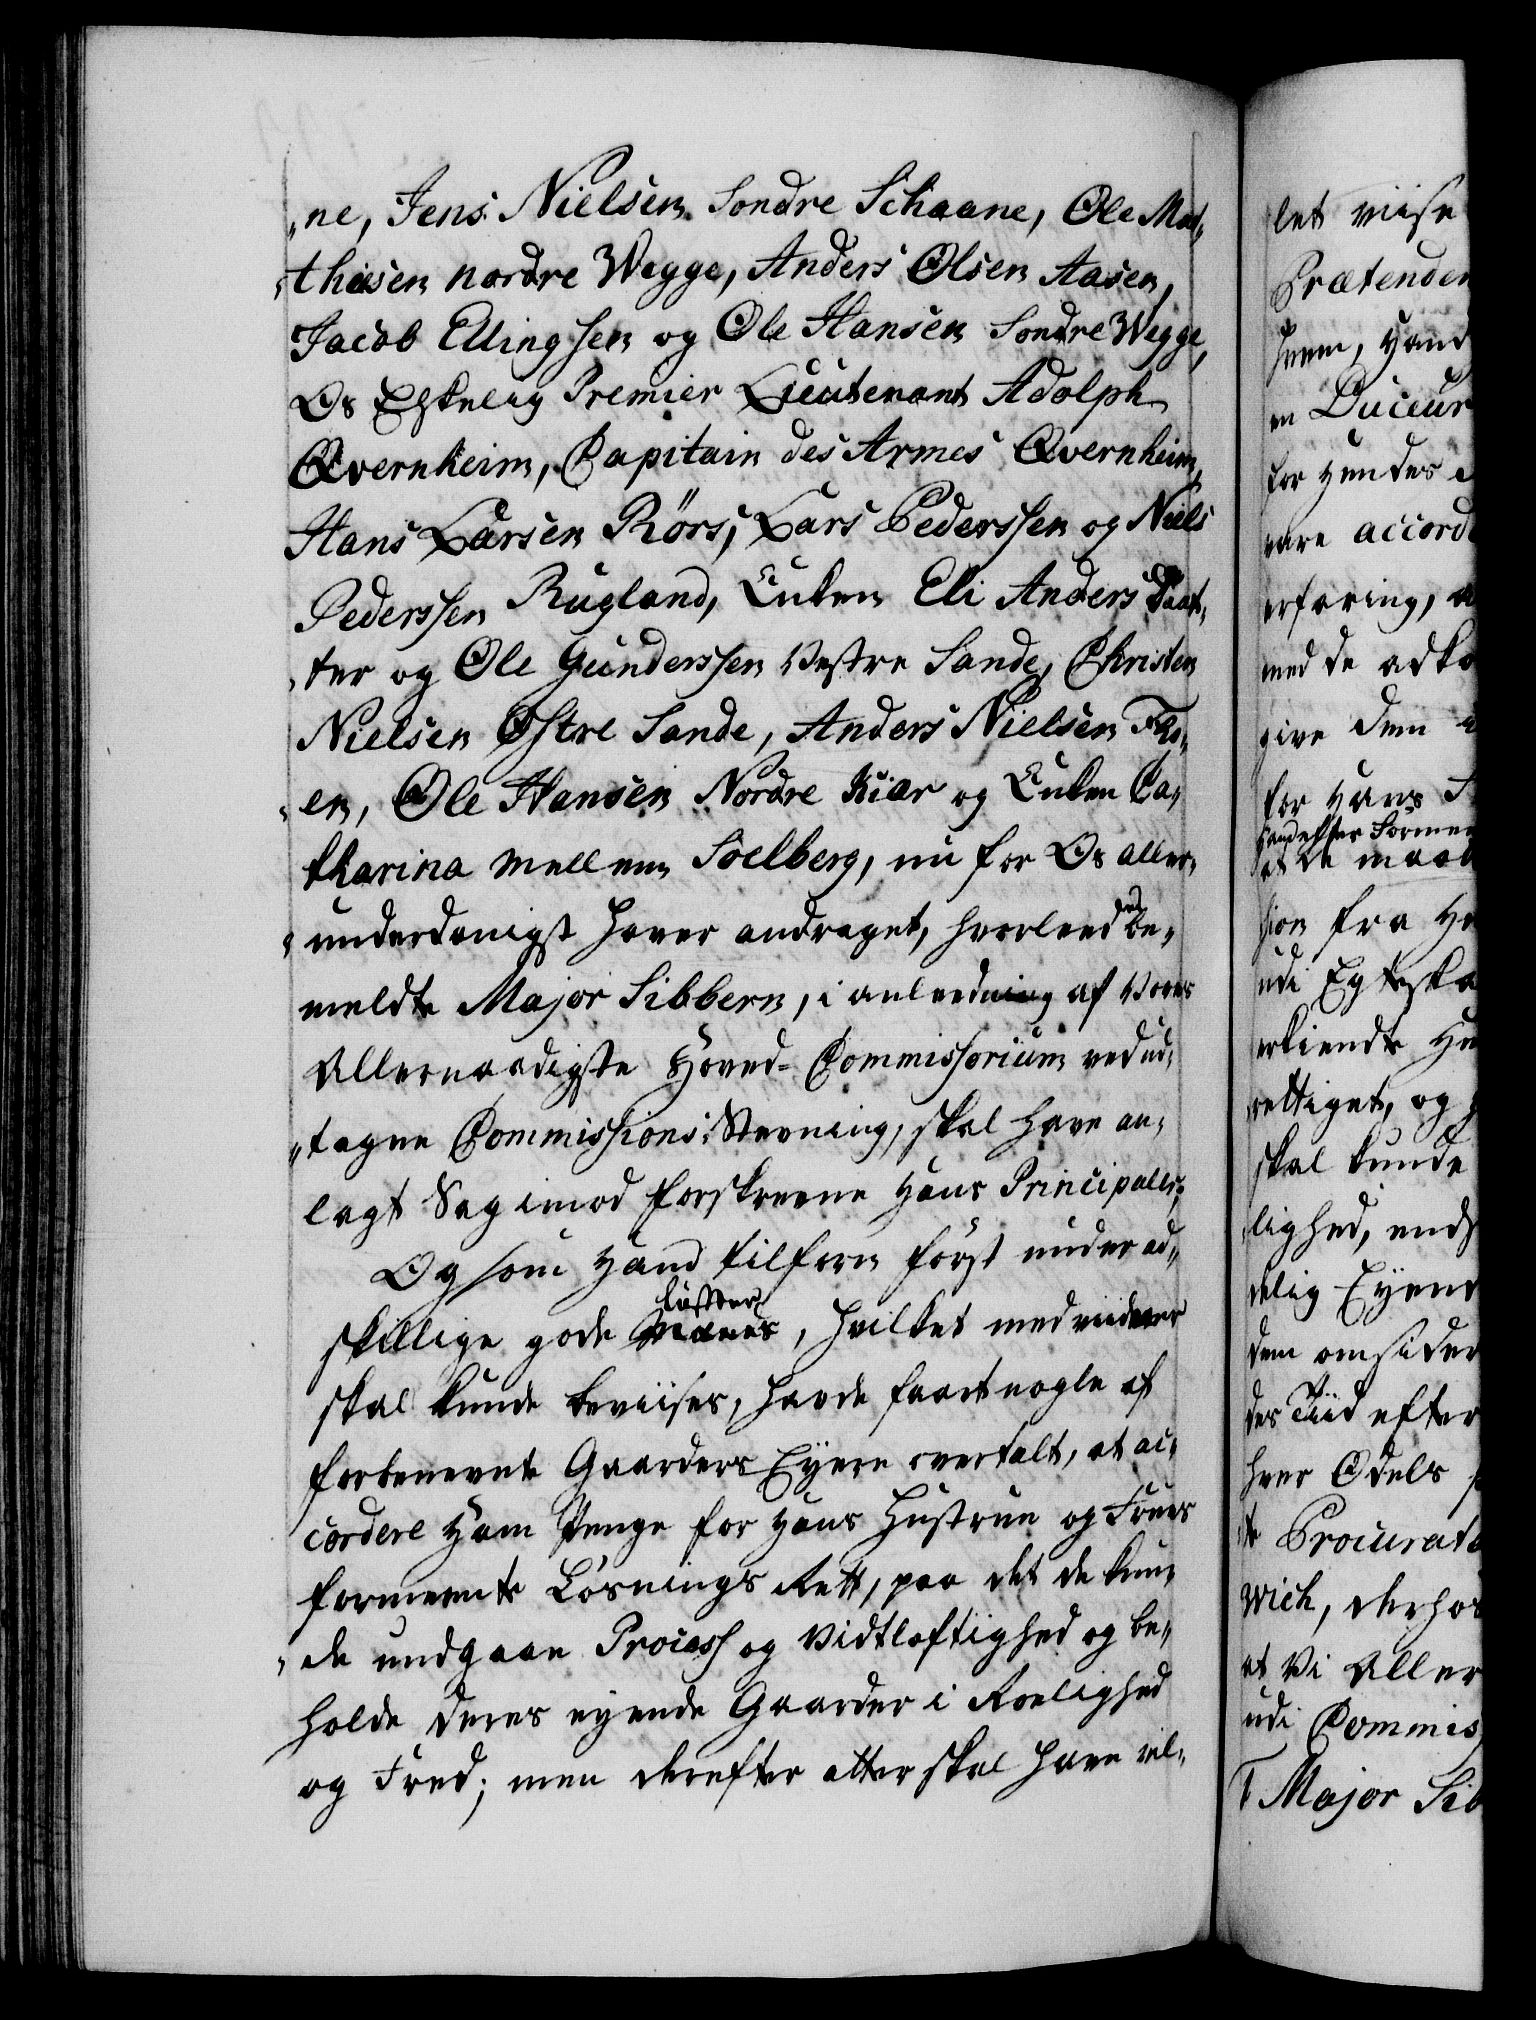 "ne, Jens Nielsen Sondre Schaane, Ole Mat„
„thiesen nordre Wegge, Anders Olsen Aasen,
Jacob Ellingsen og Ole Hansen Sondre Wegge,
Os Elskelig Premier Lieutenant Adolph
Qvernheim, Capitain des Armes Qvernheim,
Hans Larsen Rörs, Lars Pederssen og Niels
Pederssen Rugland, Enken Eli Anders Daat„
„ter og Ole Gunderssen Vestre Sande, Christen
Nielsen Østre Sande, Anders Nielsen Flo„
„en, Ole Hansen Nordre Kiær og Enken Ca„
tharina Mellem Soelberg, nu for Os aller„
„underdanigst haver andraget, hvorleedes be„
meldte Major Sibbern, i anleedning af Vores
Allernaadigste Hoved-Commissorium ved ud„
„tagne Commissions: Stevning, skal have an„
lagt Sag imod forskrevne Hans Principaler;
Og som Hand tilforn först under ad„
skillige gode Löfter, hvilket med viidere
skal kunde beviises, havde faaet nogle af
forbenevnte Gaarders Eyere overtalt, at ac„
cordere Ham Penge for Hans Hustrue og Frues
formeente Lösnings Rett, paa det de kun„
„de undgaae Process og Vidtløftighed og be„
holde deres eyende Gaarder i Roelighed
og Fred; men derefter atter skal have vel„
let viise
Prætenden
hen, Hand
en Duceur
for Hendes
være accord
erfaring, a
med de adko
give dem
for Hans
at de maat
sion fra He
udi Egteska
erkiendte He
rettiget, og
skal kunde
lighed, ends
delig Eyend
dem omsider
des Tiid efter
hver Odels
Procurato
Wich, derhos
at Vi Aller
udi Commis
Major Sib